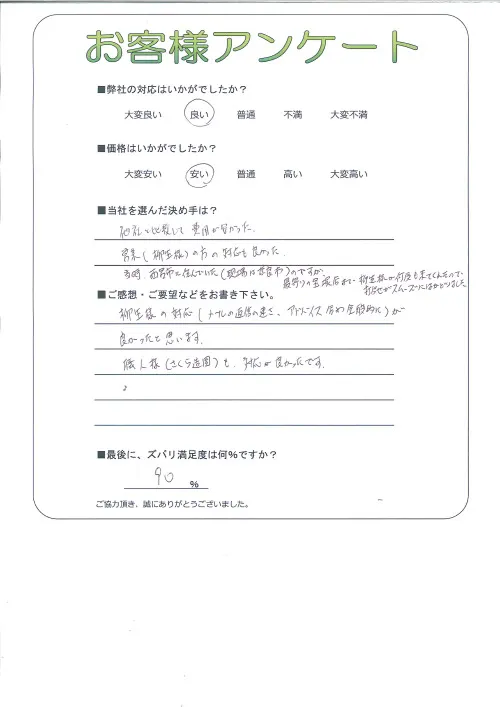 お客様アンケート
■弊社の対応はいかがでしたか？
大変良い 良い 普通 不満 大変不満
■価格はいかがでしたか？
大変安い 安い 普通 高い 大変高い
■当社を選んだ決め手は？
他社と比較して費用が安かった。
営業(柳生様)の方の対応も良かった。
当時、西宮市に住んでいた(現場は
)のですが、
最寄りの
まで柳生様が何度も来てくれたので、
打合せがスムーズに
■ご感想・ご要望などをお書き下さい。
柳生様の対応(メールの返信の速さ、アドバイス 含め全般的に)が
良かったと思います。
職人様(さくら造園)も、対応が良かったです。
■最後に、ズバリ満足度は何%ですか？
90 %
ご協力頂き、誠にありがとうございました。